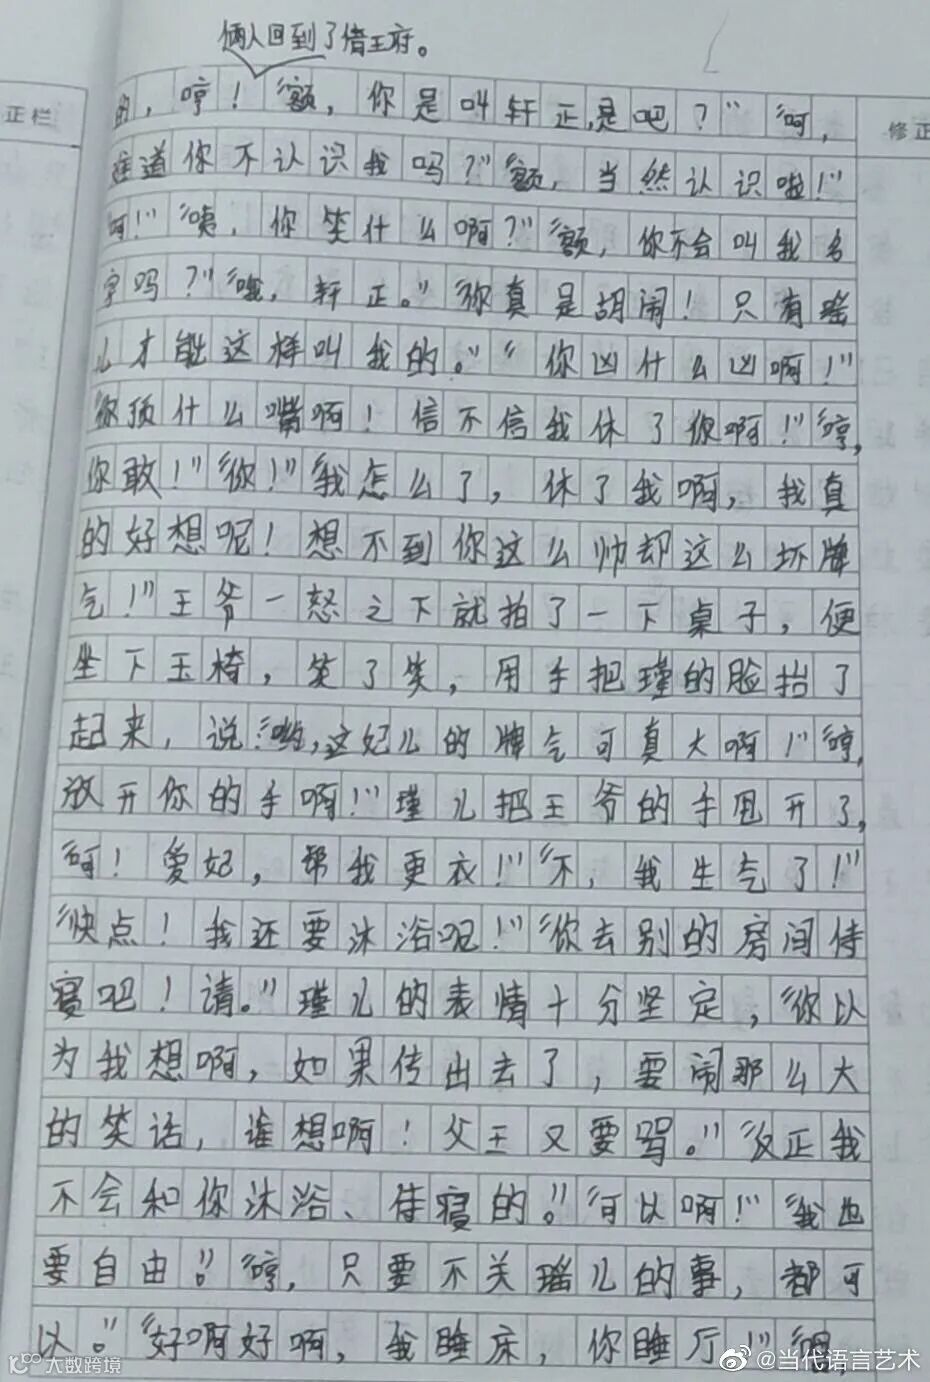 俩人回到了惜王府。
正栏
修正
的，哼！”“额，你是叫轩正，是吧？”“呵，
难道你不认识我吗？”“额，当然认识啦！”
“呵！”“咦，你笑什么啊？”“额，你不会叫我名
字吗？”“哦，轩正。”“你真是胡闹！只有瑶
儿才能这样叫我的。”“你凶什么凶啊！”
“你顶什么嘴啊！信不信我休了你啊！”“哼，
你敢！”“你！”“我怎么了，休了我啊，我真
的好想呢！想不到你这么帅却这么坏脾
气！”王爷一怒之下就拍了一下桌子，便
坐下玉椅，笑了笑，用手把瑾的脸抬了
起来，说：“哟，这妃儿的脾气可真大啊！”“哼，
放开你的手啊！”瑾儿把王爷的手甩开了，
“呵！爱妃，帮我更衣！”“不，我生气了！”
“快点！我还要沐浴呢！”“你去别的房间侍
寝吧！请。”瑾儿的表情十分坚定，“你以
为我想啊，如果传出去了，要闹那么大
的笑话，谁想啊！父王又要骂。”“反正我
不会和你沐浴、侍寝的。”“可以啊！”“我也
要自由。”“哼，只要不关瑶儿的事，都可
以。”“好啊好啊，我睡床，你睡厅！”“嗯，
大数跨境
@当代语言艺术